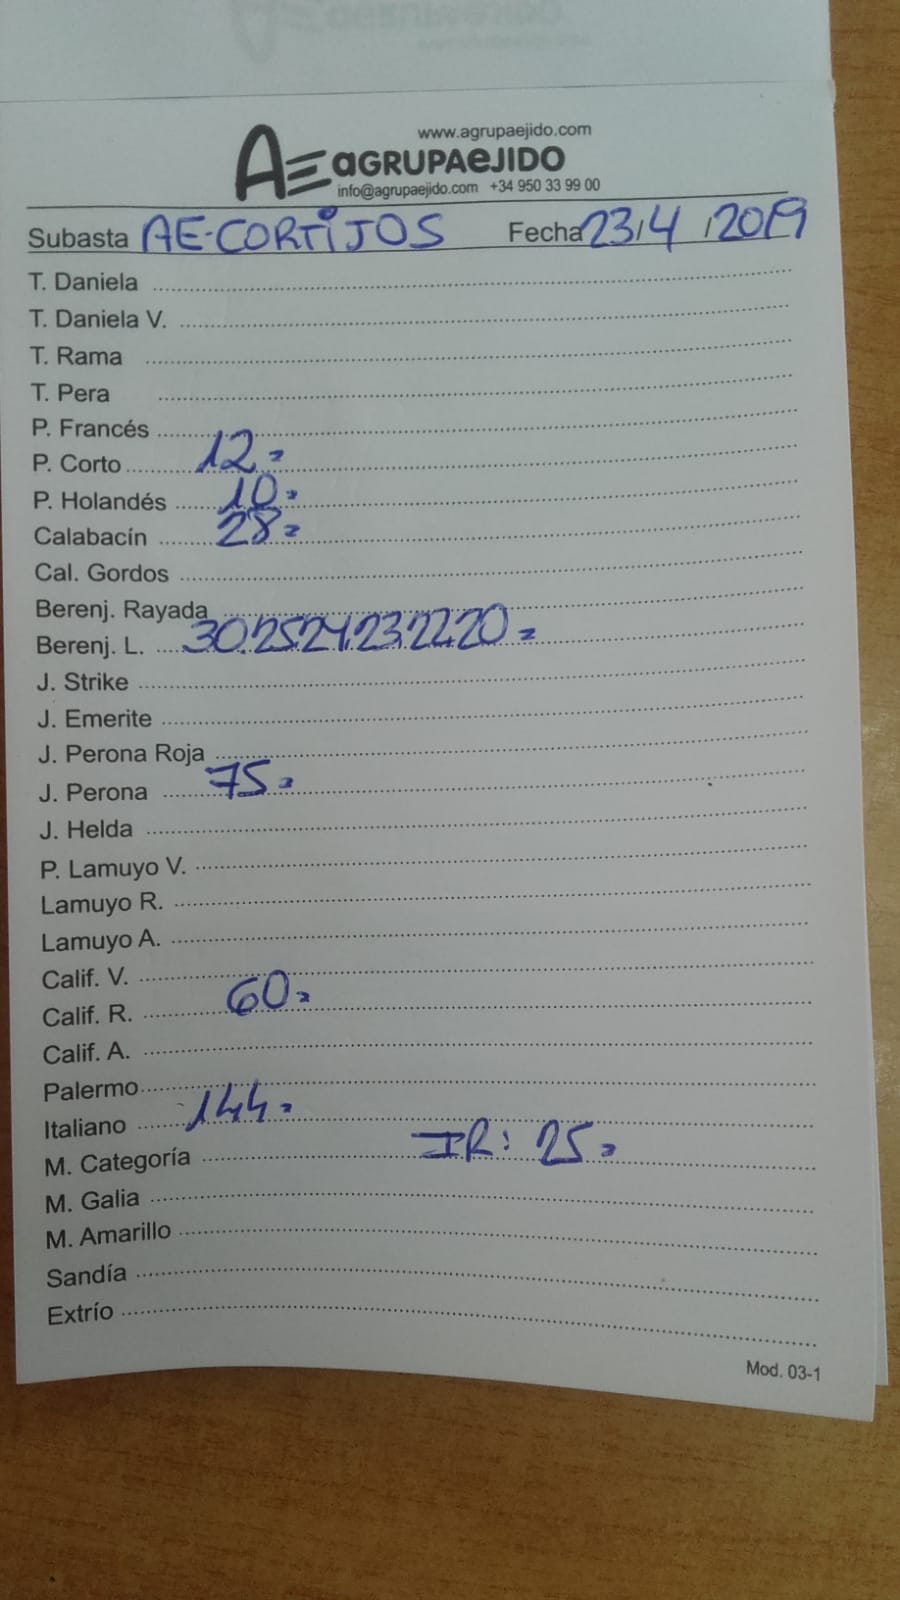 www.agrupaejido.com
AE aGRUPAeJIDO
info@agrupaejido.com +34 950 33 99 00
Subasta AE-CORTiJOS Fecha 23/4/2019
T. Daniela
T. Daniela V.
T. Rama
T. Pera
P. Francés
P. Corto 12=
P. Holandés 10=
Calabacín 28=
Cal. Gordos
Berenj. Rayada
Berenj. L. 30.25.24.23.22.20=
J. Strike
J. Emerite
J. Perona Roja
J. Perona 75=
J. Helda
P. Lamuyo V.
Lamuyo R.
Lamuyo A.
Calif. V.
Calif. R. 60=
Calif. A.
Palermo
Italiano 144=
M. Categoría IR: 25=
M. Galia
M. Amarillo
Sandía
Extrío
Mod. 03-1